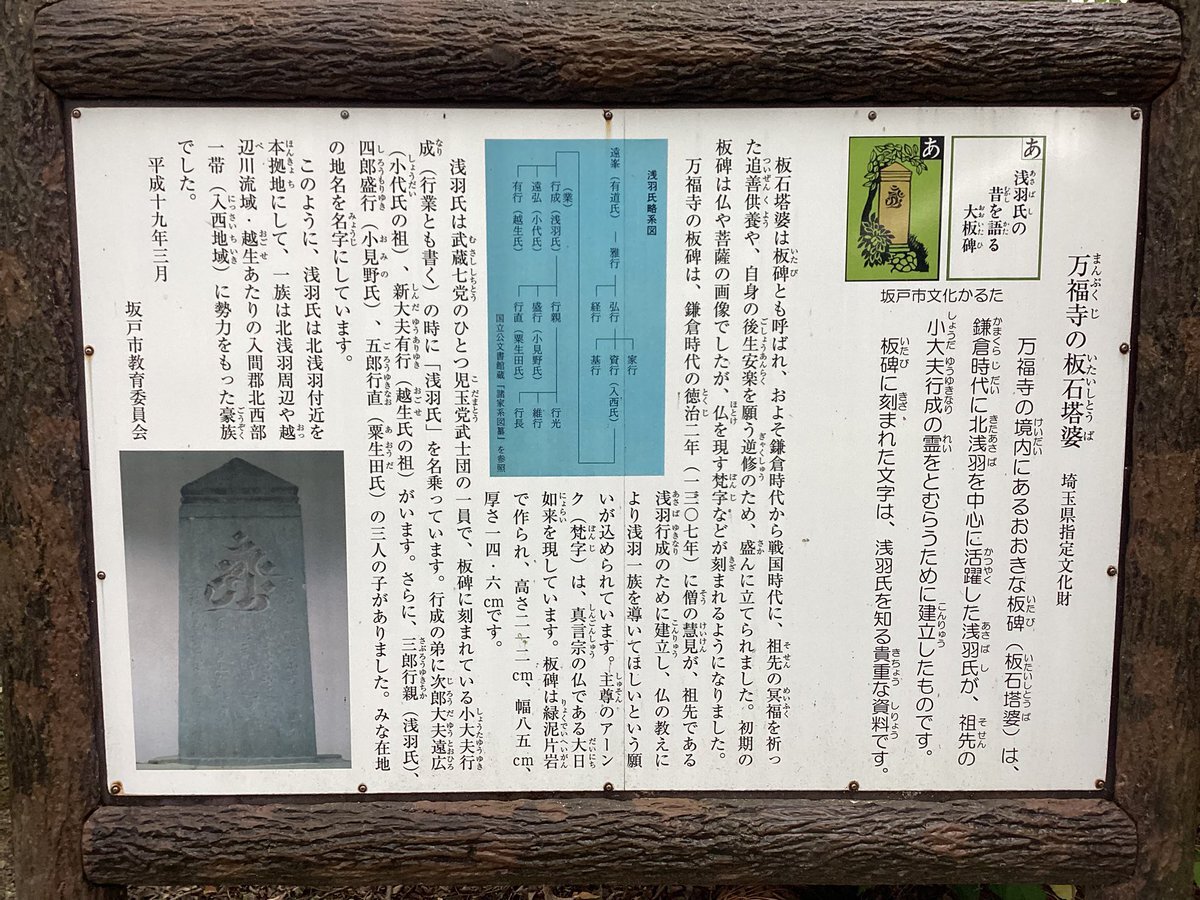 万福寺の板石塔婆　埼玉県指定文化財
あ
浅羽氏の
昔を語る
大板碑
あ
坂戸市文化かるた
万福寺の境内にあるおおきな板碑（板石塔婆）は、
鎌倉時代に北浅羽を中心に活躍した浅羽氏が、祖先の
小大夫行成の霊をとむらうために建立したものです。
板碑に刻まれた文字は、浅羽氏を知る貴重な資料です。
板石塔婆は板碑とも呼ばれ、およそ鎌倉時代から戦国時代に、祖先の冥福を祈っ
た追善供養や、自身の後生安楽を願う逆修のため、盛んに立てられました。初期の
板碑は仏や菩薩の画像でしたが、仏を現す梵字などが刻まれるようになりました。
万福寺の板碑は、鎌倉時代の徳治二年（一三〇七年）に僧の慧見が、祖先である
浅羽行成のために建立し、仏の教えに
より浅羽一族を導いてほしいという願
いが込められています。主尊のアーン
ク（梵字）は、真言宗の仏である大日
如来を現しています。板碑は緑泥片岩
で作られ、高さ二一二㎝、幅八五㎝、
厚さ一四・六㎝です。
浅羽氏略系図
遠峯（有道氏）
雅行
弘行
経行
家行
資行（入西氏）
基行
（業）
行成（浅羽氏）
遠弘（小代氏）
有行（越生氏）
行親
盛行（小見野氏）
行直（粟生田氏）
行光
維行
行長
国立公文書館蔵「諸家系図纂」を参照
浅羽氏は武蔵七党のひとつ児玉党武士団の一員で、板碑に刻まれている小大夫行
成（行業とも書く）の時に「浅羽氏」を名乗っています。行成の弟に次郎大夫遠広
（小代氏の祖）、新大夫有行（越生氏の祖）がいます。さらに、三郎行親（浅羽氏）、
四郎盛行（小見野氏）、五郎行直（粟生田氏）の三人の子がありました。みな在地
の地名を名字にしています。
このように、浅羽氏は北浅羽付近を
本拠地にして、一族は北浅羽周辺や越
辺川流域・越生あたりの入間郡北西部
一帯（入西地域）に勢力をもった豪族
でした。
平成十九年三月
坂戸市教育委員会